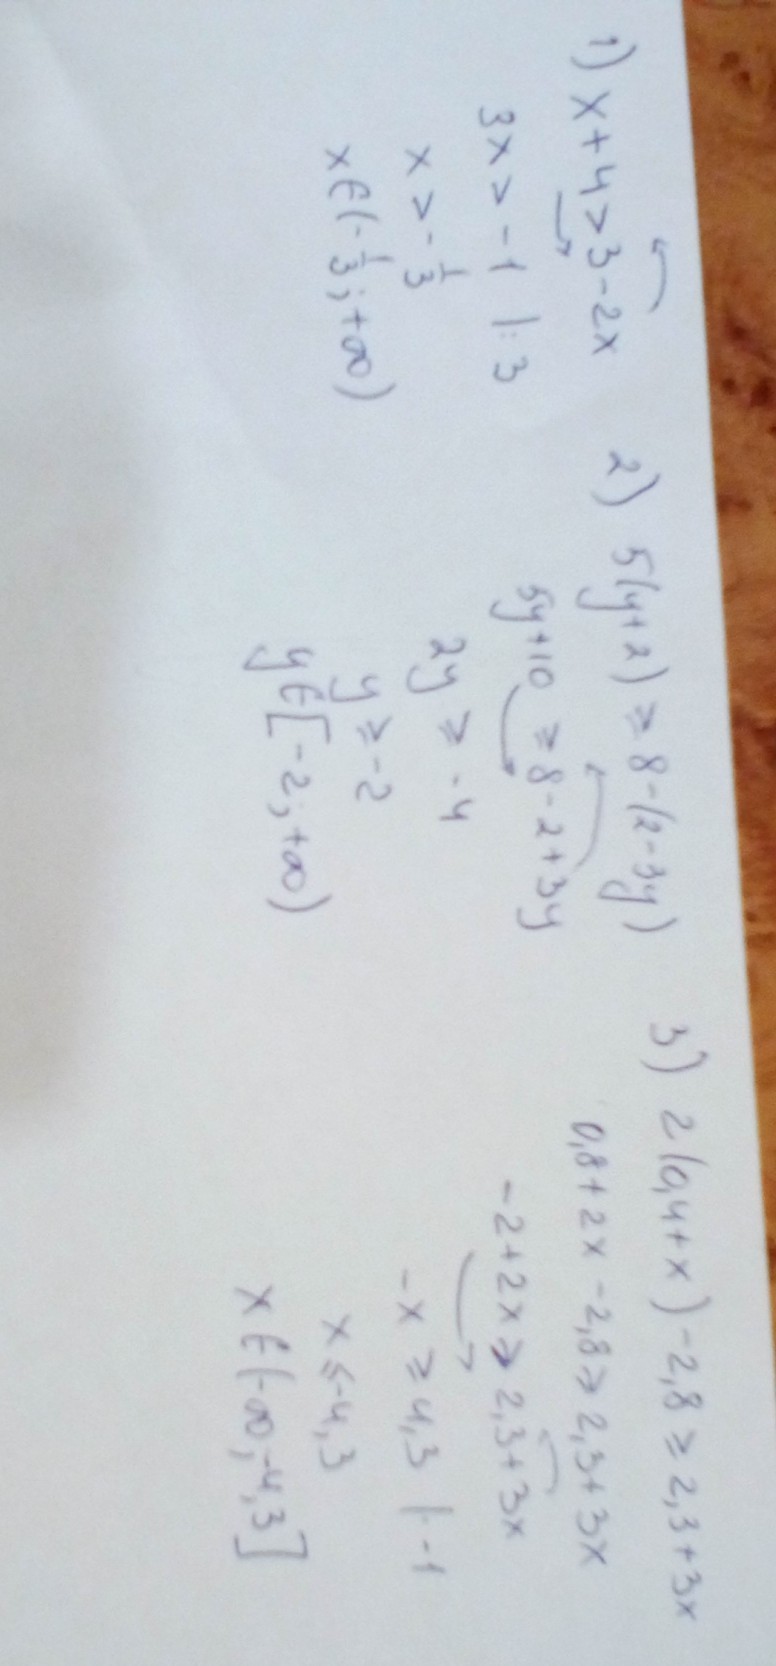 1) x+4>3-2x
3x>-1 |:3
x>-1/3
x∈(-1/3;+∞)
2) 5(y+2)≥8-(2-3y)
5y+10≥8-2+3y
2y≥-4
y≥-2
y∈[-2;+∞)
3) 2(0,4+x)-2,8≥2,3+3x
0,8+2x-2,8≥2,3+3x
-2+2x≥2,3+3x
-x≥4,3 |·-1
x≤-4,3
x∈(-∞;-4,3]